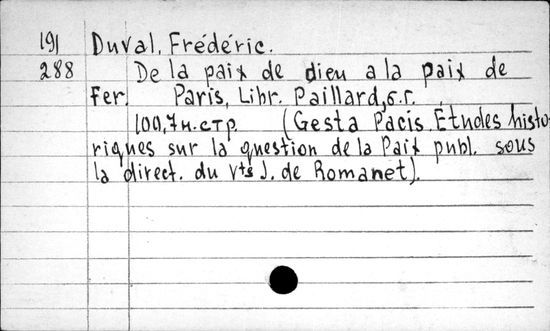 191 Duval, Frédéric.
288 De la paix de dieu a la paix de
Fer. Paris, Libr. Paillard, б.г.
100,7н.стр. (Gesta Pacis. Études histo-
riques sur la question de la Paix publ. sous
la direct. du Vts J. de Romanet).